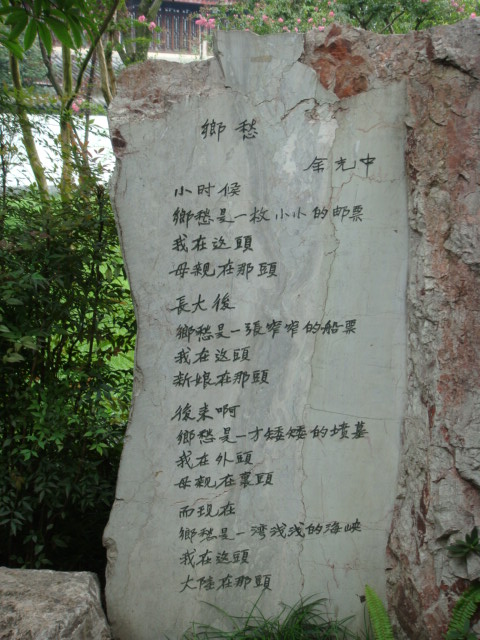 鄉愁
余光中
小时候
鄉愁是一枚小小的邮票
我在这頭
母親在那頭
長大後
鄉愁是一張窄窄的船票
我在这頭
新娘在那頭
後来啊
鄉愁是一方矮矮的墳墓
我在外頭
母親在裏頭
而现在
鄉愁是一湾浅浅的海峡
我在这頭
大陆在那頭